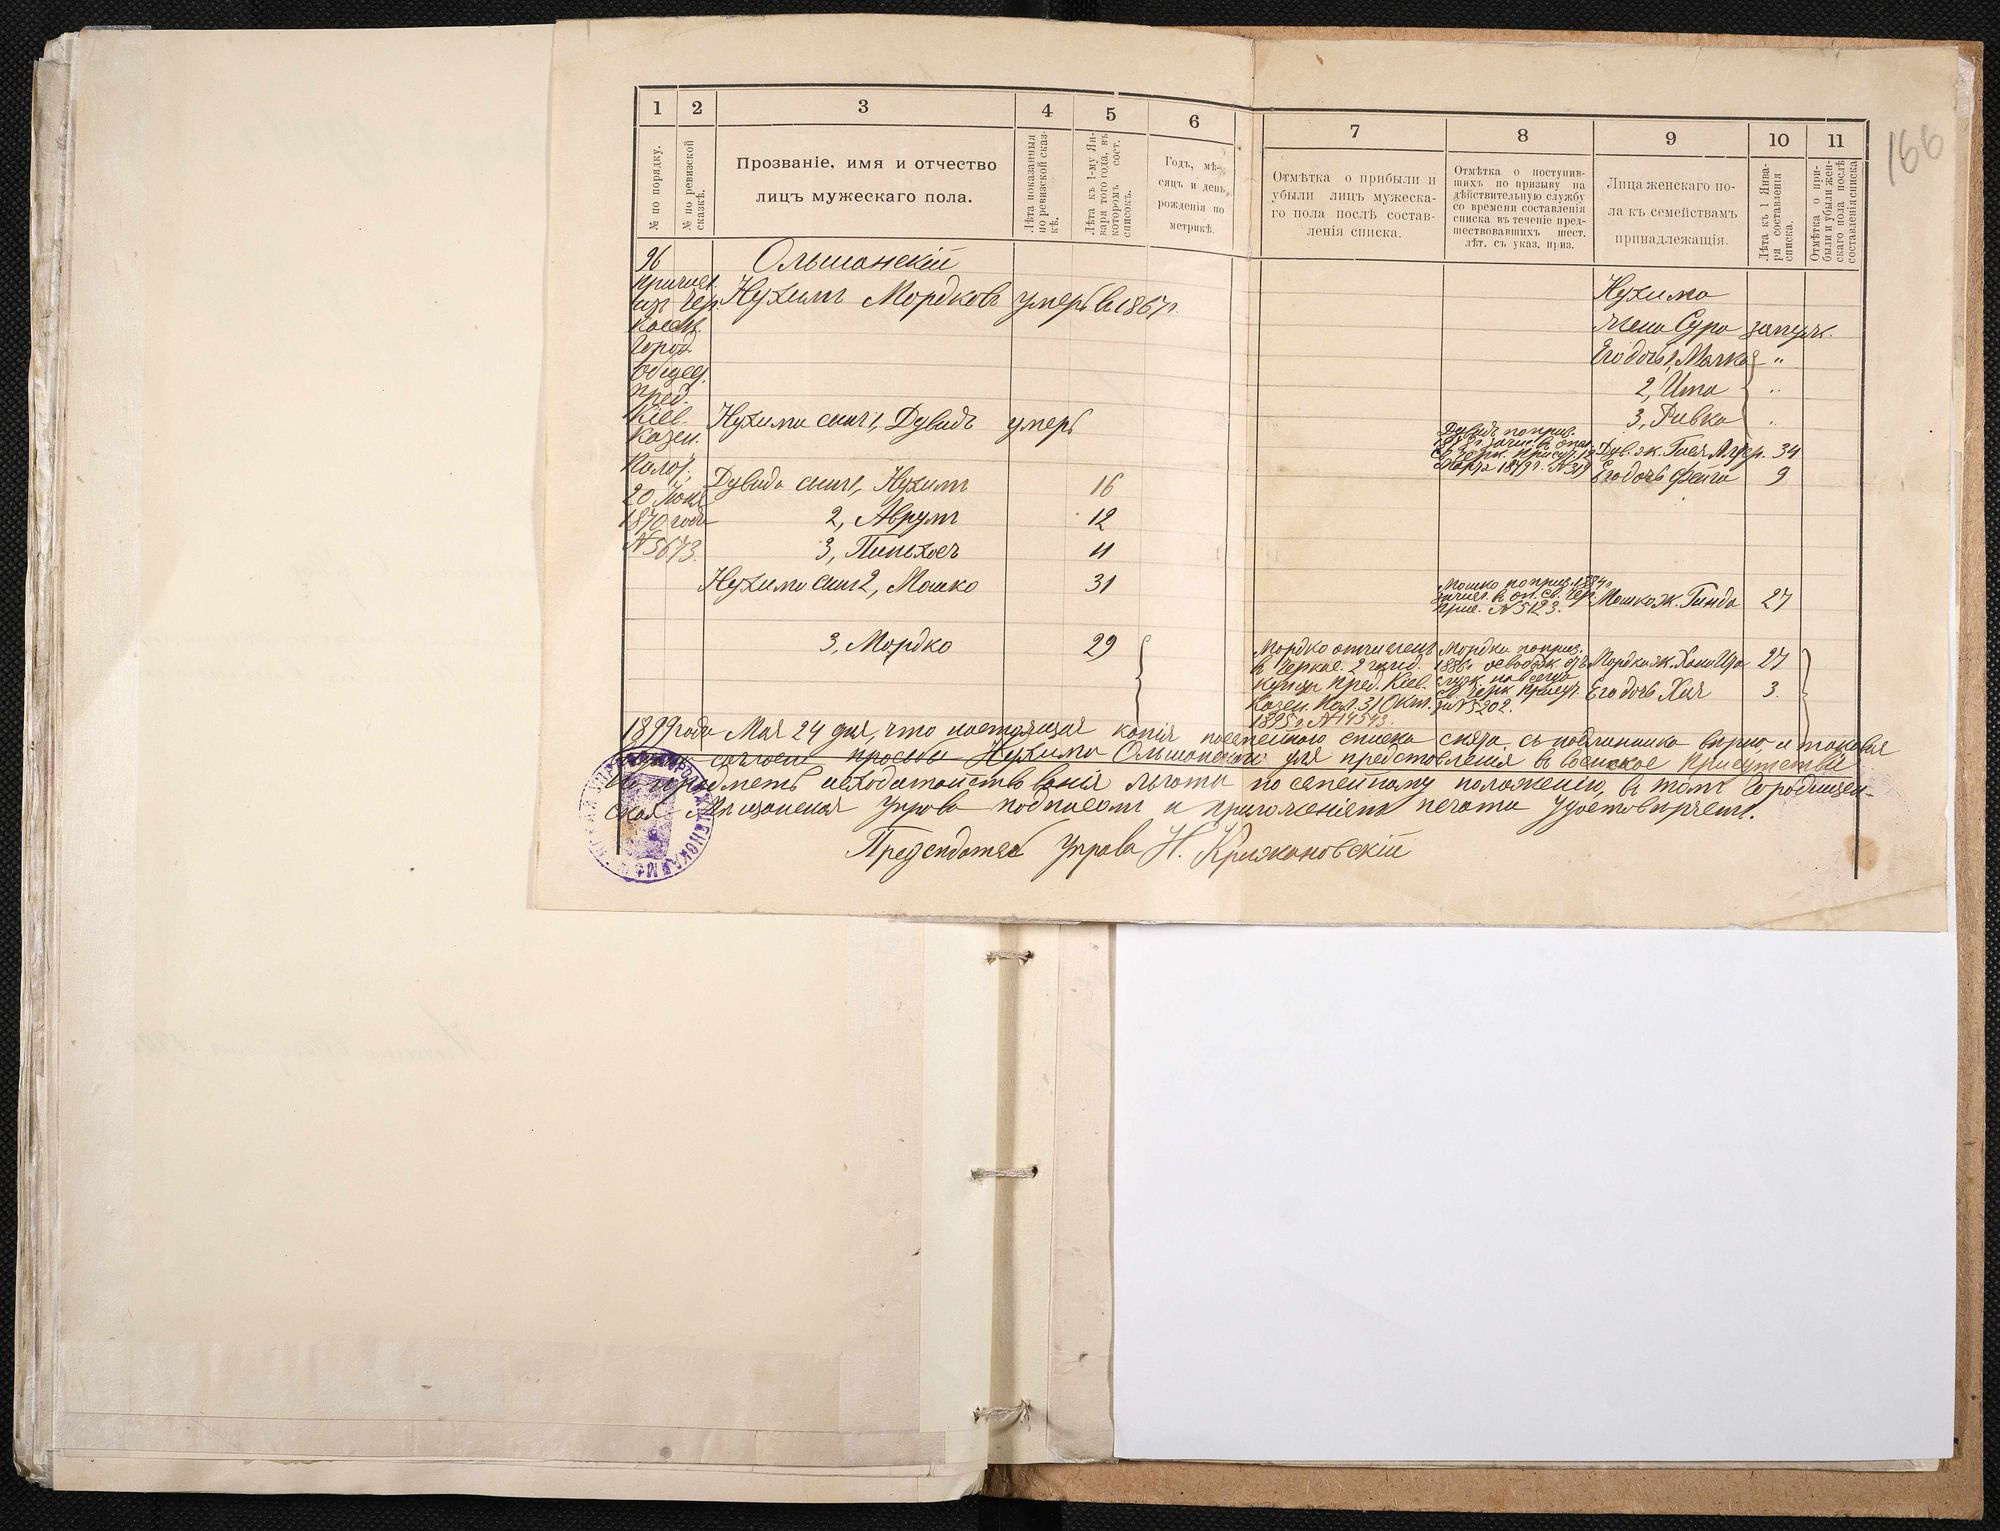 166
1
2
3
4
5
6
7
8
9
10
11
№ по порядку.
№ по ревизской
сказкѣ.
Прозваніе, имя и отчество
лицъ мужескаго пола.
Лѣта показанныя
по ревизской сказ-
кѣ.
Лѣта къ 1-му Ян-
варя того года, въ
которомъ сост.
списокъ.
Годъ, мѣ-
сяцъ и день
рожденія по
метрикѣ.
Отмѣтка о прибыли и
убыли лицъ мужеска-
го пола послѣ состав-
ленія списка.
Отмѣтка о поступив-
шихъ по призыву на
дѣйствительную службу
со времени составленія
списка въ теченіе пред-
шествовавшихъ шест.
лѣт. съ указ. приз.
Лица женскаго по-
ла къ семействамъ
принадлежащія.
Лѣта къ 1 Янва-
ря составленія
списка.
Отмѣтка о при-
были и убыли жен-
скаго пола послѣ
составленія списка
96
причисл.
изъ Чер.
касск.
Город.
общес.
пред.
Кіев.
Казен.
Палат.
20 Іюня
1870 года
№5673.
Ольшанскій
Нухимъ Мордковъ умеръ в 1867 г.
Нухима
жена Сура замуж.
Его дочь 1, Малка "
2, Ита "
3, Ривка "
Нухима сынъ 1, Дувидъ умеръ
Дувидъ по приз.
Дув. ж. Гися 34
Дувида сынъ 1, Нухимъ 16
Его дочь Фейга 9
2, Аврумъ 12
3, Пинхосъ 11
Нухима сынъ 2, Мошко 31
Мошко по приз. 1884 г.
зачисл. в оп. св. Чер.
прис. №5123.
Мошка ж. Гинда 27
3, Мордко 29
Мордко отчисленъ
в Черкас. 2 гильд.
купцы пред. Кіев.
Казен. Пал. 31 Окт.
1895 г. №14543.
Мордка по приз.
1886 г. освобож. отъ
служ. навсегда
св. Черк. Присут.
за №5202.
Мордка ж. Хана 27
Его дочь Хая 3.
1899 года Мая 24 дня, что настоящая копія посемейнаго списка снята съ подлинника вѣрно, и таковая
просьбы Нухима Ольшанскаго для представленія в воинское присутствіе
на предметъ исходатайствованія льготы по семейному положенію, в томъ Городищен-
ская Мѣщанская Управа подписомъ и приложеніемъ печати удостовѣряетъ.
Предсѣдатель Управы Н. Крижановскій